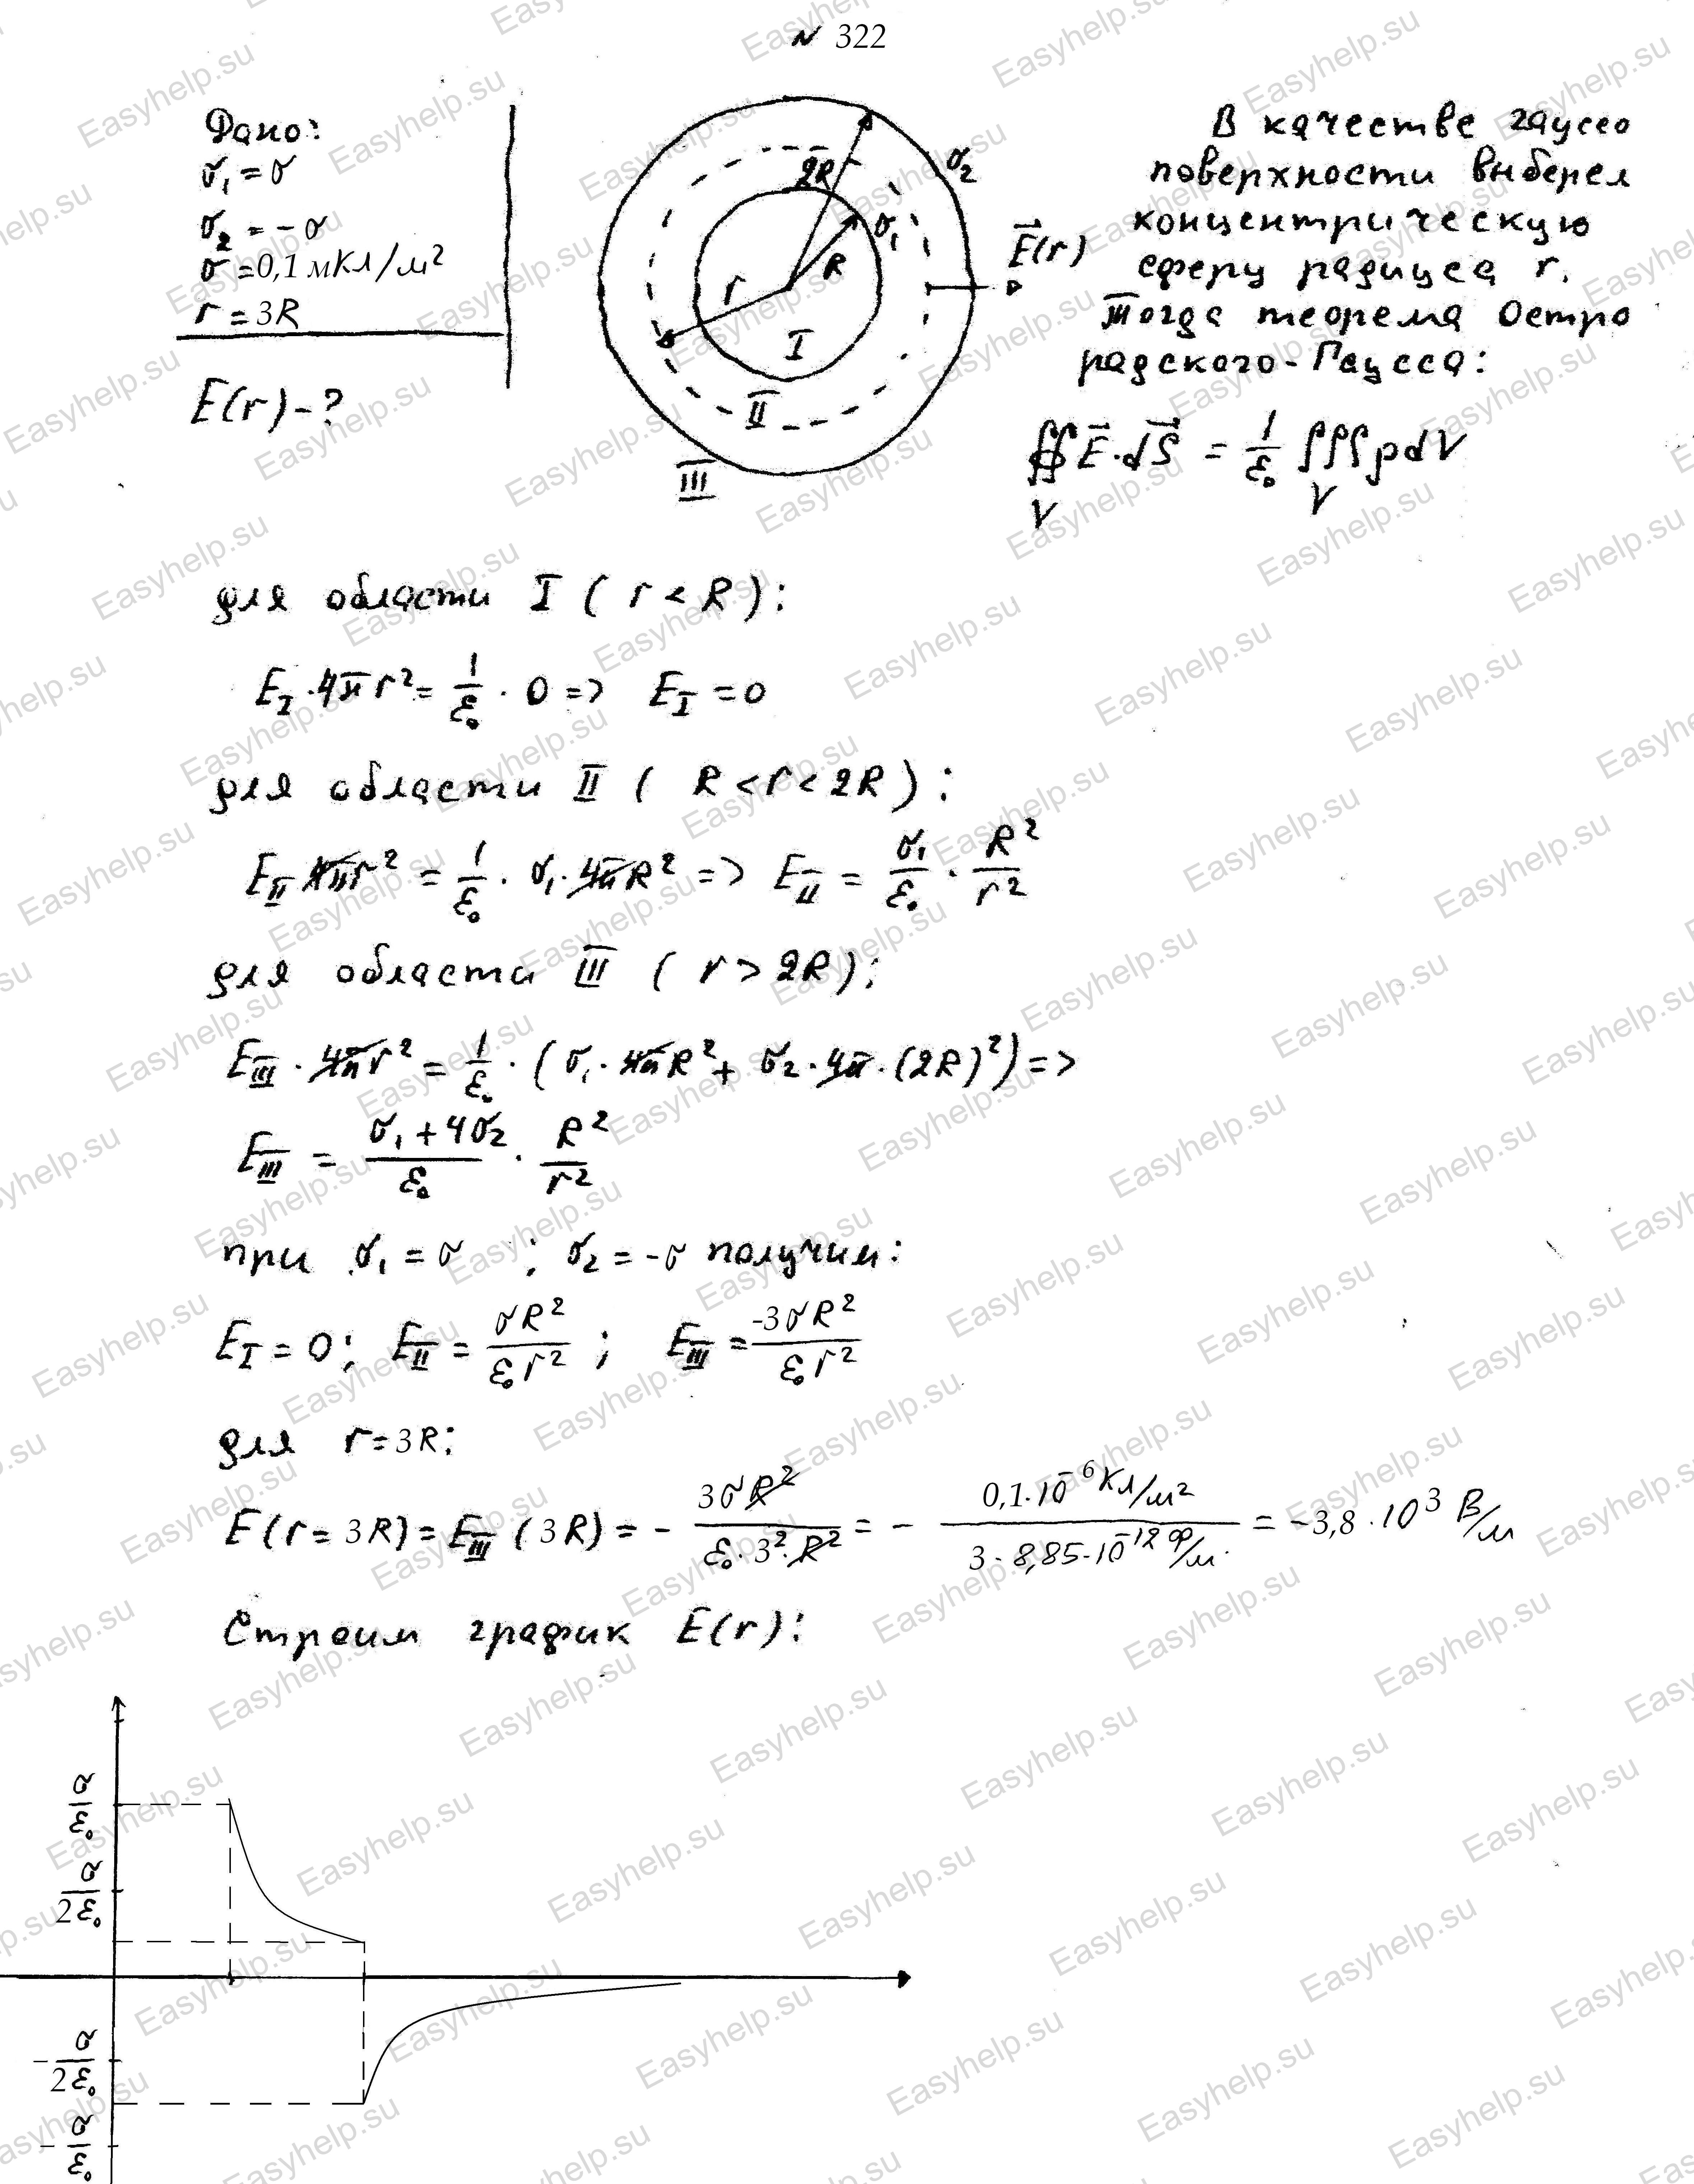 N 322
Дано:
σ₁ = σ
σ₂ = - σ
σ = 0,1 мКл/м²
r = 3R
E(r) - ?
2R
σ₂
σ₁
R
r
I
II
III
E⃗(r)
В качестве гауссо
поверхности выберем
концентрическую
сферу радиуса r.
Тогда теорема Остро
радского-Гаусса:
∯ E⃗·dS⃗ = 1/ε₀ ∭ρdV
V V
для области I ( r < R ):
E_I · 4π r² = 1/ε₀ · 0 => E_I = 0
для области II ( R < r < 2R ):
E_II 4π r² = 1/ε₀ · σ₁ · 4π R² => E_II = σ₁/ε₀ · R²/r²
для области III ( r > 2R );
E_III · 4π r² = 1/ε₀ · ( σ₁ · 4π R² + σ₂ · 4π · (2R)² ) =>
E_III = (σ₁ + 4σ₂)/ε₀ · R²/r²
при σ₁ = σ ; σ₂ = -σ получим:
E_I = 0; E_II = σR²/ε₀r² ; E_III = -3σR²/ε₀r²
для r = 3R:
E(r = 3R) = E_III (3R) = - 3σR²/ε₀·3²·R² = - 0,1·10⁻⁶ Кл/м² / 3·8,85·10⁻¹² Ф/м = -3,8·10³ В/м
Строим график E(r):
σ/ε₀
σ/2ε₀
-σ/2ε₀
-σ/ε₀
Easyhelp.su